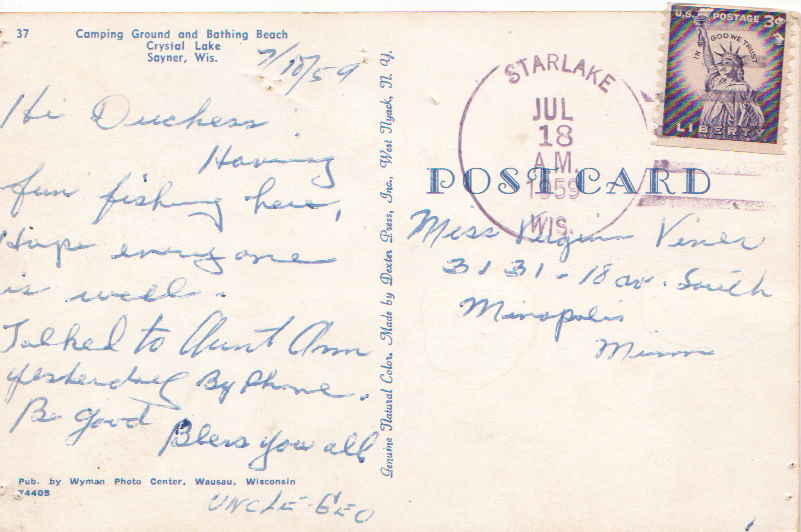 37
Camping Ground and Bathing Beach
Crystal Lake
Sayner, Wis.
7/18/59
Hi Duchess
Having
fun fishing here,
Hope everyone
is well.
Talked to Aunt Ann
yesterday By Phone.
Be good
Bless you all
UNCLE GEO
Pub. by Wyman Photo Center, Wausau, Wisconsin
74405
Genuine Natural Color. Made by Dexter Press, Inc., West Nyack, N. Y.
STARLAKE
JUL
18
A.M.
1959
WIS.
U.S. POSTAGE 3¢
IN GOD WE TRUST
LIBERTY
POST CARD
Miss Virginia Viner
3131 - 18 av. South
Minapolis
Minn